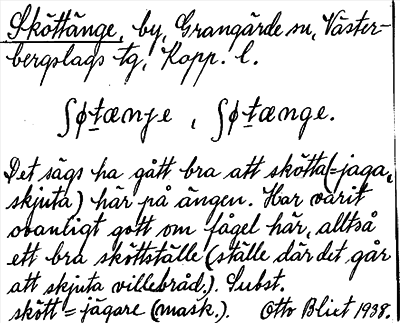 Sköttänge, by, Grangärde sn, Väster-
bergslags tg, Kopp. l.
ʃøtænje, ʃøtænge.
Det sägs ha gått bra att skötta (=jaga,
skjuta) här på ängen. Har varit
ovanligt gott om fågel här, alltså
ett bra sköttställe (ställe där det går
att skjuta villebråd.). Subst.
skött = jägare (mask.). Otto Blixt 1938.